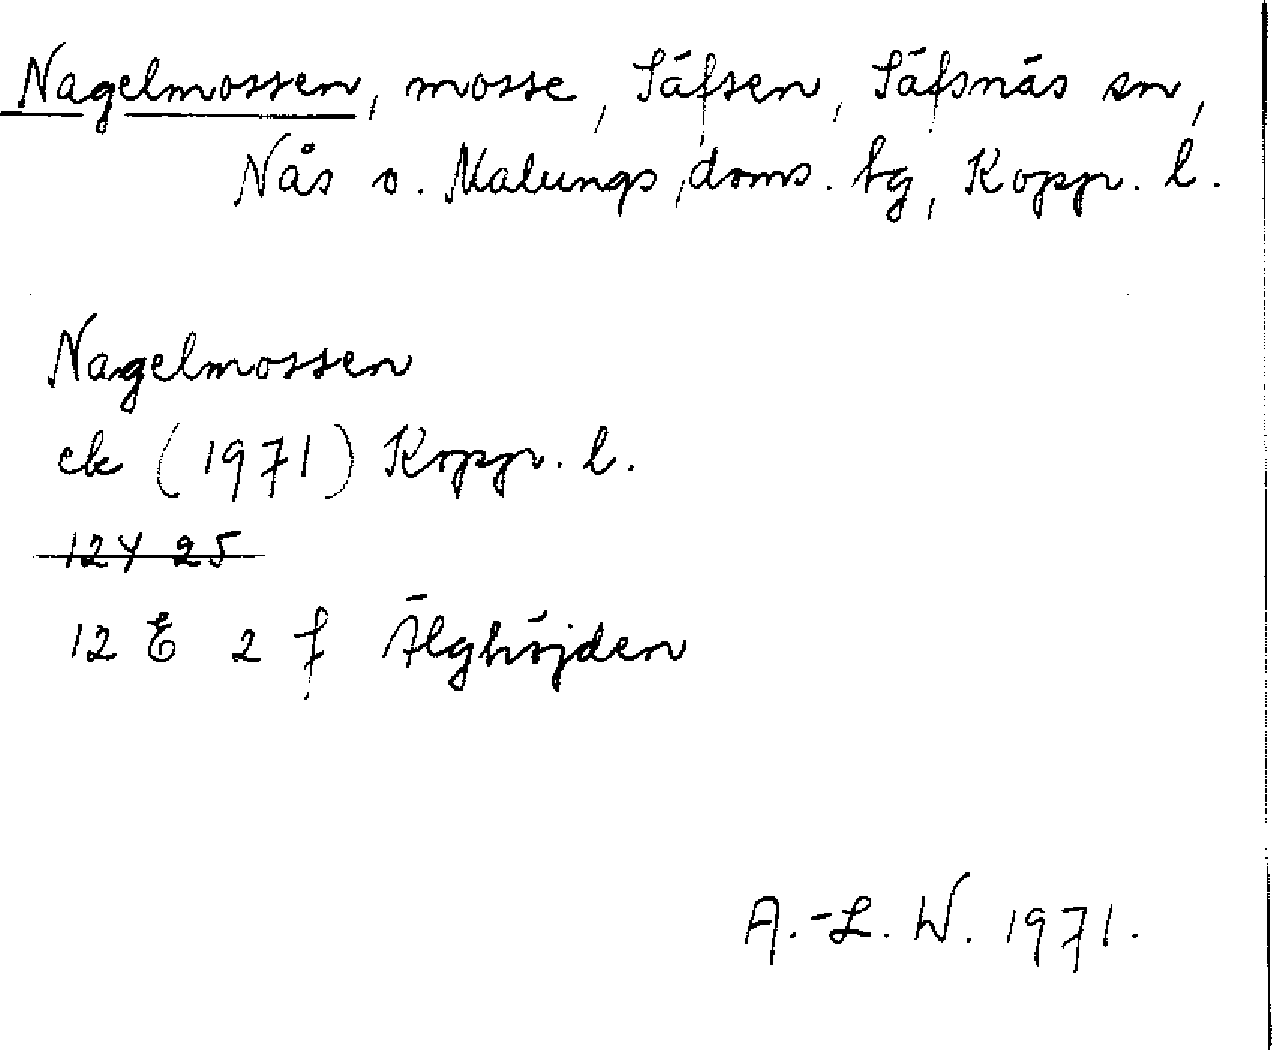 Nagelmossen, mosse, Säfsen, Säfsnäs sn,
Nås o. Malungs doms. tg, Kopp. l.
Nagelmossen
ek (1971) Kopp. l.
12Y 25
12 E 2 f Älghöjden
A.-L. W. 1971.